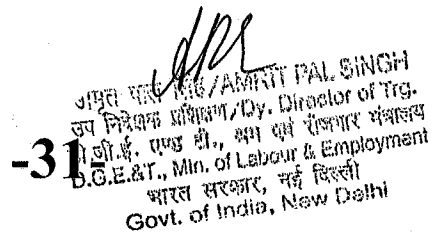 अमृत पाल सिंह/AMRIT PAL SINGH
उप निदेशक प्रशिक्षण/Dy. Director of Trg.
डी.जी.ई. एण्ड टी., श्रम एवं रोजगार मंत्रालय
-31-
D.G.E.&T., Min. of Labour & Employment
भारत सरकार, नई दिल्ली
Govt. of India, New Delhi